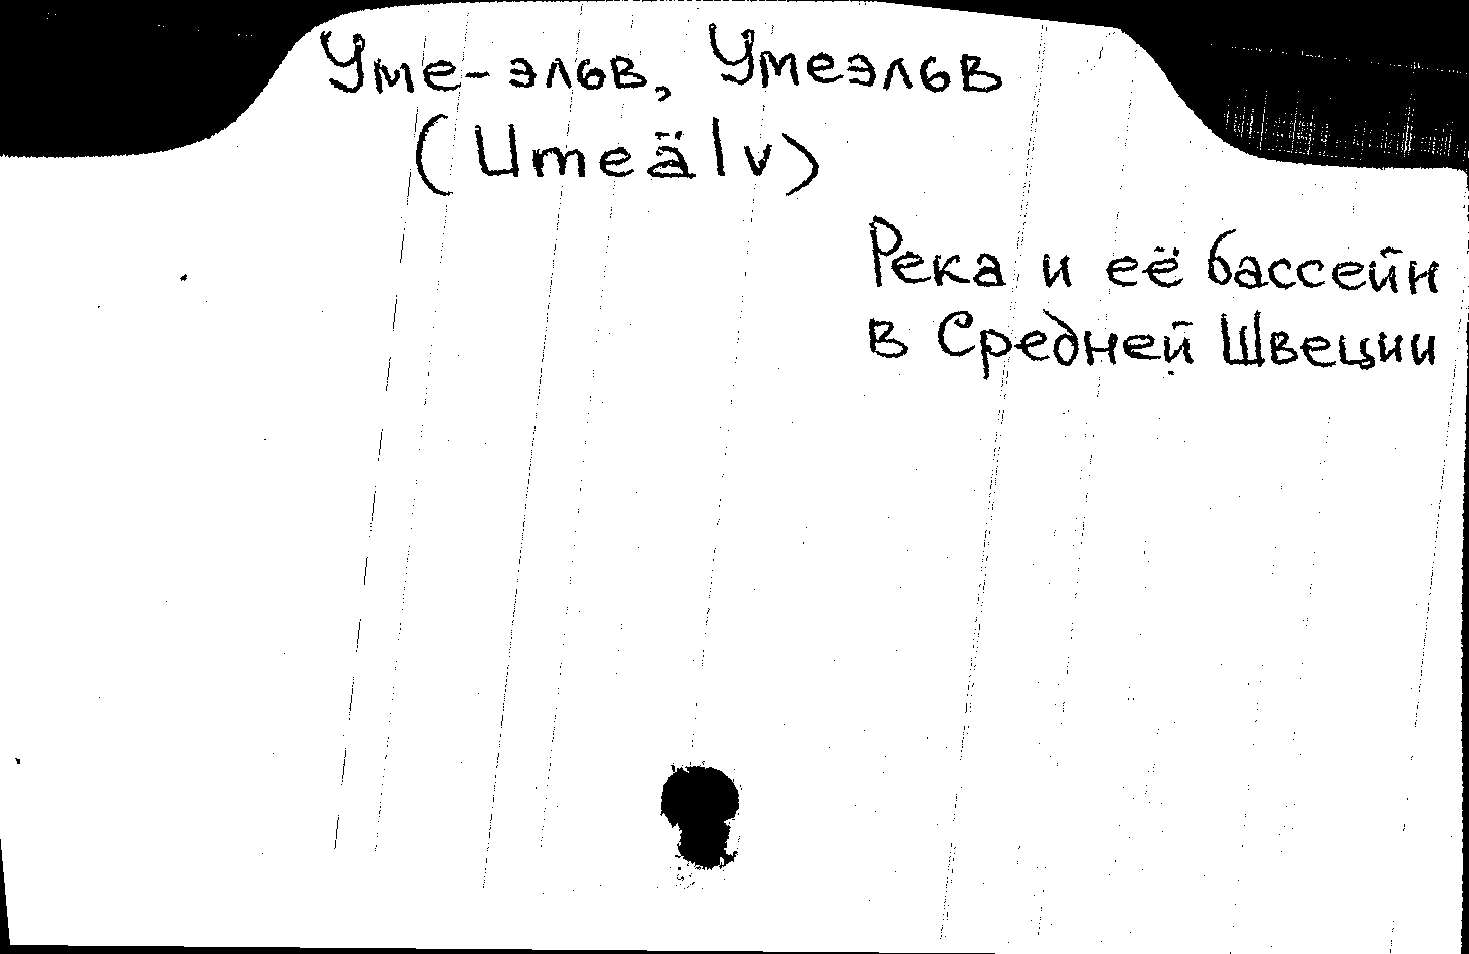 Уме-эльв, Умеэльв
(Umeälv)
Река и её бассейн
в Средней Швеции